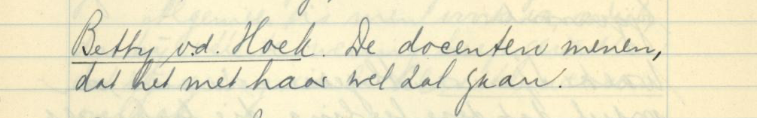 Betty v.d. Hoek. De docenten menen,
dat het met haar wel zal gaan.